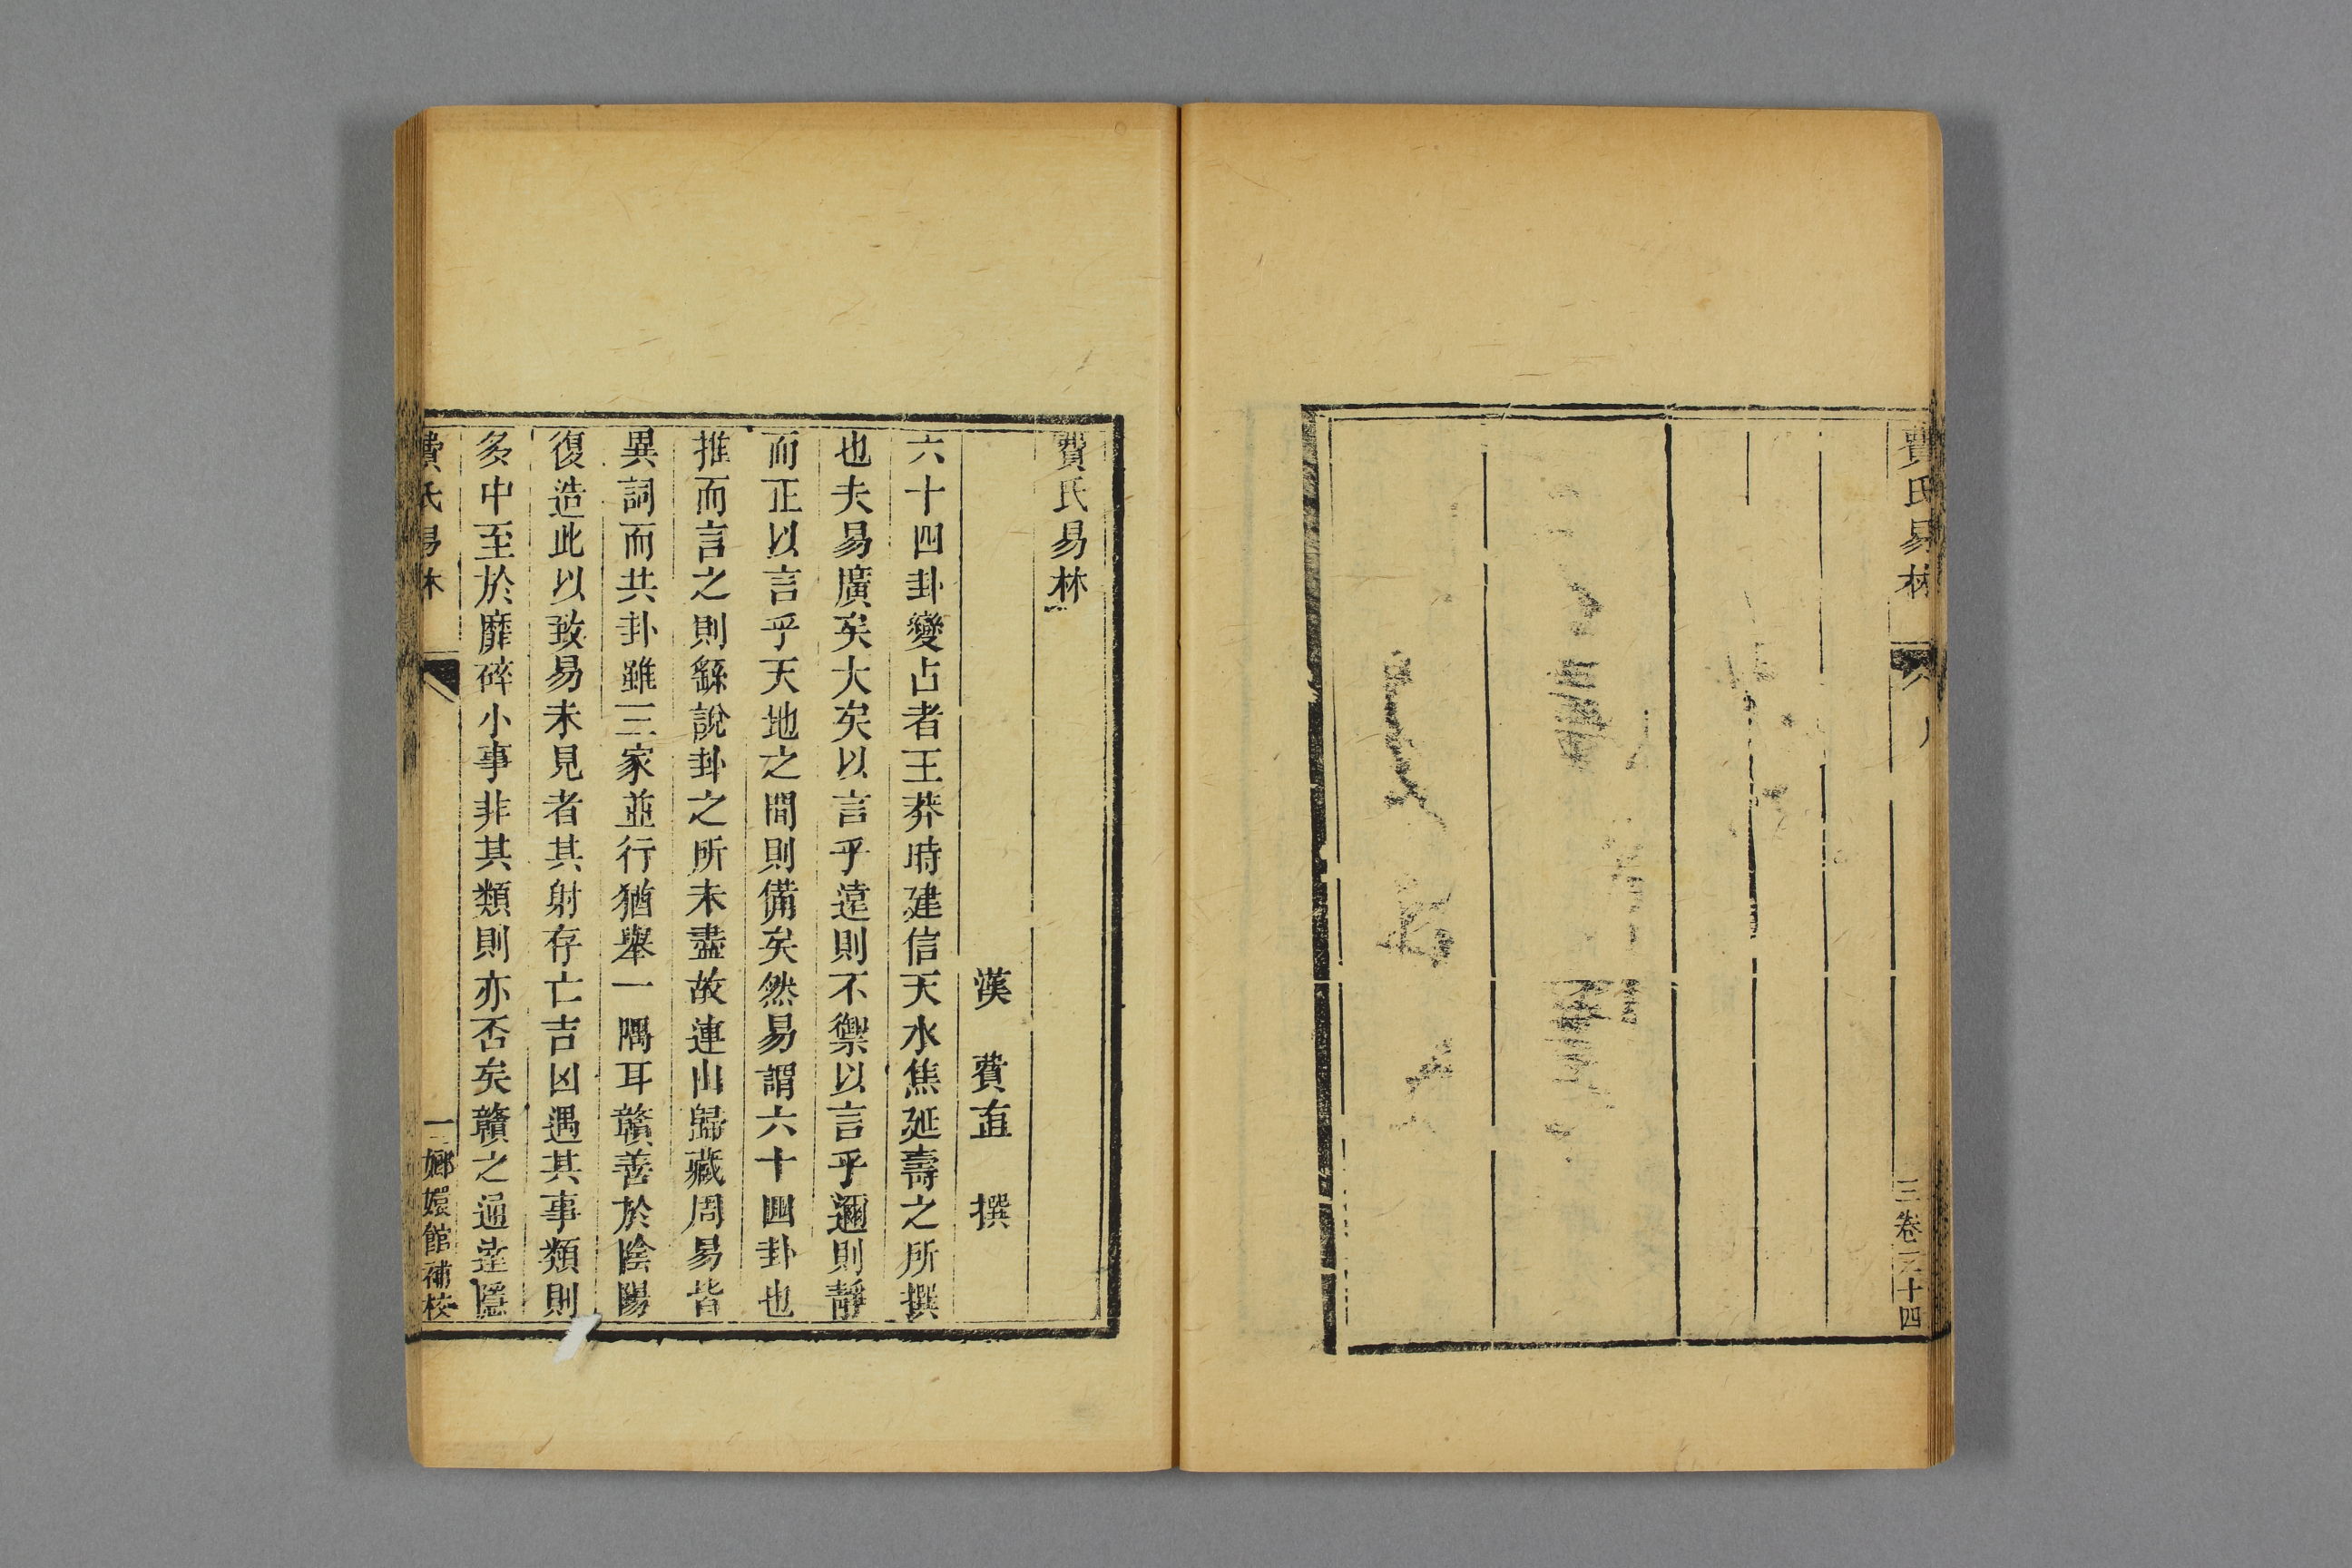 費氏易林
三卷之十四
費氏易林
漢 費直 撰
六十四卦變占者王莽時建信天水焦延壽之所撰
也夫易廣矣大矣以言乎遠則不禦以言乎邇則靜
而正以言乎天地之間則備矣然易謂六十四卦也
推而言之則繇說卦之所未盡故連山歸藏周易皆
異詞而共卦雖三家並行猶舉一隅耳贛善於陰陽
復造此以致易未見者其射存亡吉凶遇其事類則
多中至於靡碎小事非其類則亦否矣贛之通達隱
費氏易林
一 嫏嬛館補校